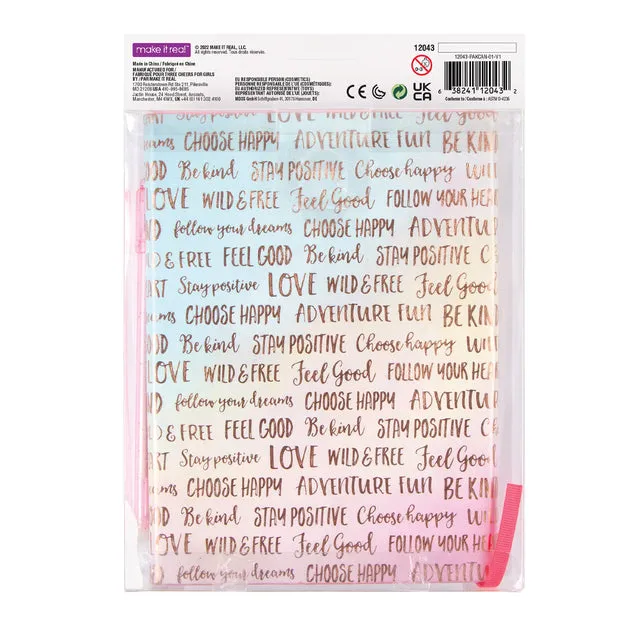 make it real
© 2022 MAKE IT REAL, LLC.
All rights reserved. Tous droits réservés.
12043
12043-PAKCAN-01-V1
Made in China / Fabriqué en Chine
MANUFACTURED FOR/
FABRIQUÉ POUR THREE CHEERS FOR GIRLS
BY / PAR MAKE IT REAL
MD 21208 USA 410-995-8695
Manchester, M4 6WX, UK +44 (0) 161 302 4100
EU RESPONSIBLE PERSON (COSMETICS)
EU AUTHORIZED REPRESENTATIVE (TOYS)
0-3
CE
UK
CA
6 38241 12043 2
Conforms to / Conforme à : ASTM D-4236
Stay positive LOVE WILD & FREE Feel Good
ams CHOOSE HAPPY ADVENTURE FUN BE KIND
OD Be kind STAY POSITIVE Choose happy WILD
LOVE WILD & FREE Feel Good FOLLOW YOUR HEA
ND follow your dreams CHOOSE HAPPY ADVENTUR
D & FREE FEEL GOOD Be kind STAY POSITIVE C
ART Stay positive LOVE WILD & FREE Feel Good
ams CHOOSE HAPPY ADVENTURE FUN BE KIND
OD Be kind STAY POSITIVE Choose happy WILD
LOVE WILD & FREE Feel Good FOLLOW YOUR HEA
ND follow your dreams CHOOSE HAPPY ADVENTU
D & FREE FEEL GOOD Be kind STAY POSITIVE C
ART Stay positive LOVE WILD & FREE Feel Good
ams CHOOSE HAPPY ADVENTURE FUN BE KIND
OD Be kind STAY POSITIVE Choose happy WI
OVE WILD & FREE Feel Good FOLLOW YOUR HEA
ND follow your dreams CHOOSE HAPPY ADVENTU